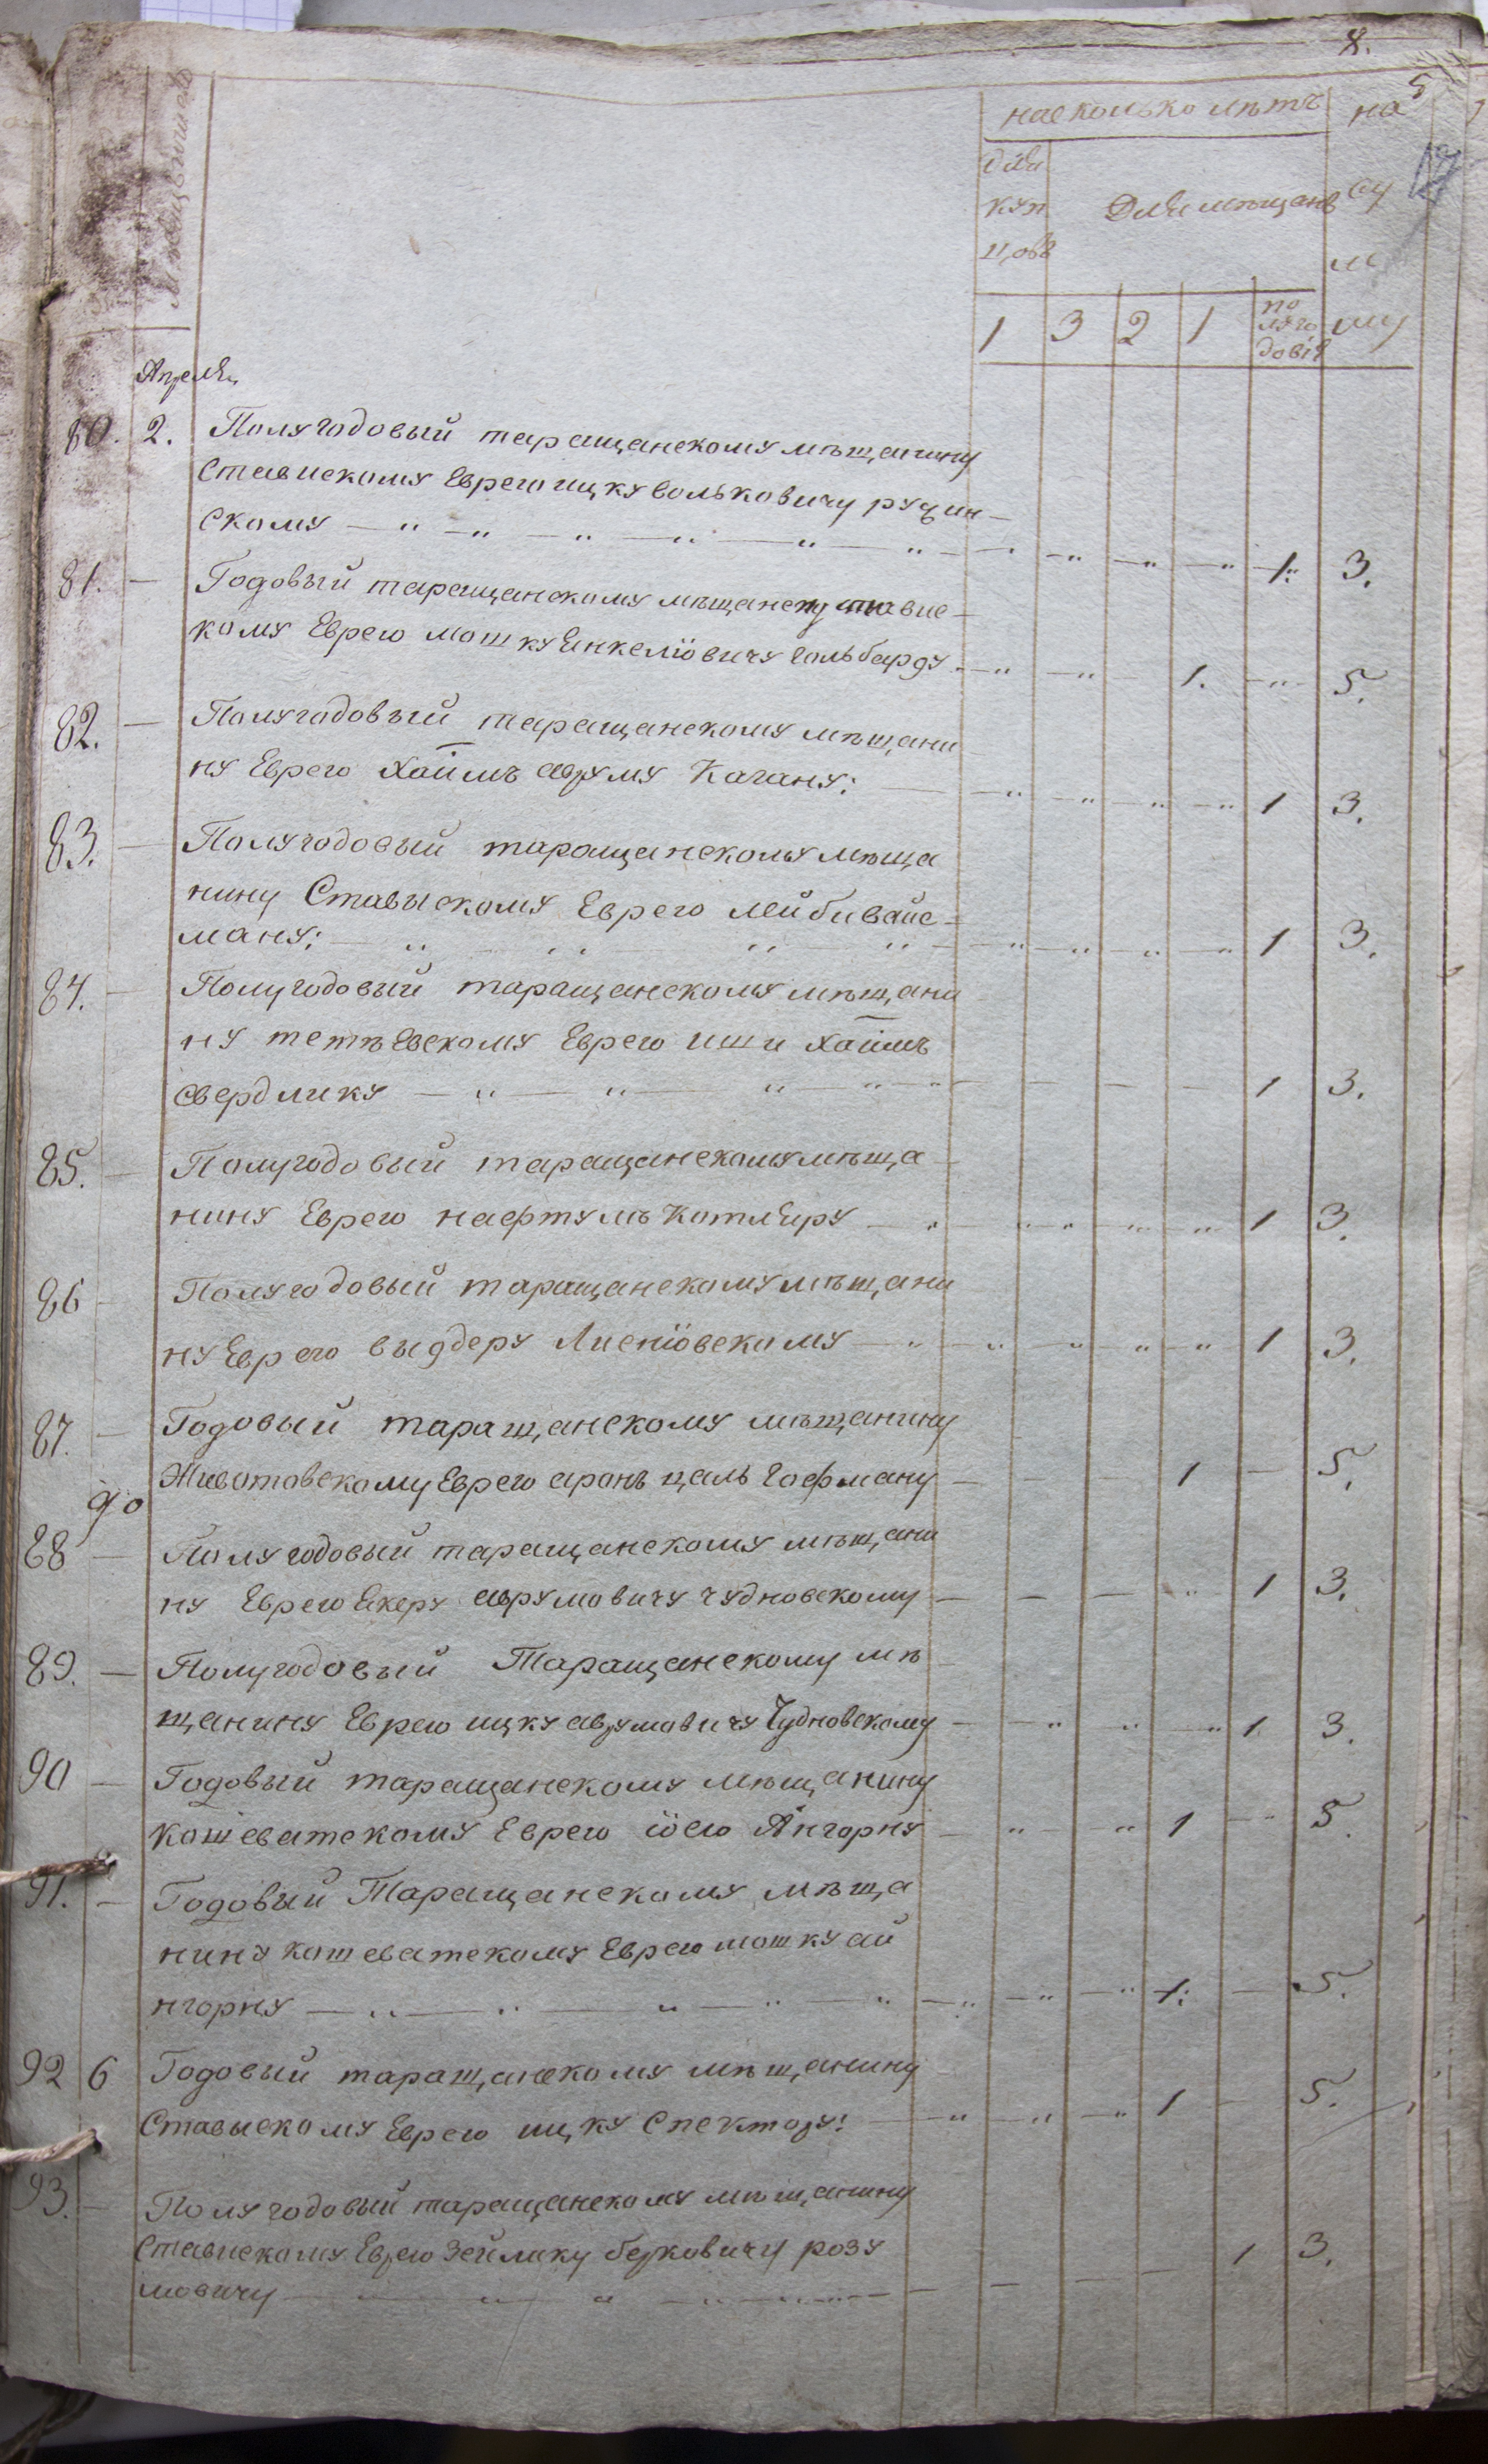 на сколько лѣтъ
на
5
для
куп
цовъ
Для мѣщанъ
су
м
му
1 3 2 1
по
луго
довія
Апреля
80. 2. Полугодовый таращанскому мѣщанину
Ставискому Еврею ицку волковичу ружин
скому 1. 3.
81. Годовый таращанскому мѣщанену ставис
кому Еврею мошку Янкеліовичу гольбарду 1. 5.
82. Полугодовый таращанскому мѣщани
ну Еврею Хаимъ авруму Кагану: 1 3.
83. Полугодовый таращанскому мѣща
нину Ставыскому Еврею лейби вайс
ману: 1 3.
84. Полугодовый таращанскому мѣщани
ну тетѣевскому Еврею иши хаимъ
свердлику 1 3.
85. Полугодовый таращанскому мѣща
нину Еврею нафтулъ котляру 1 3.
86 Полугодовый таращанскому мѣщани
ну Еврею выдеру Лисиіовскому 1 3.
87. Годовый таращанскому мѣщанину
Животовскому Еврею аронъ цаль гофману 1 5.
до
88 Полугодовый таращанскому мѣщани
ну Еврею Екеру аврумовичу чудновскому 1 3.
89. Полугодовый Таращанскому мѣ
щанину Еврею ицку аврумовичу Чудновскому 1 3.
90 Годовый таращанскому мѣщанину
кошеватскому Еврею іосю Айнгорну 1 5.
91. Годовый Таращанскому мѣща
нину кошеватскому Еврею мошку ай
нгорну 1: 5.
92 6 Годовый таращанскому мѣщанину
Ставыскому Еврею ицку Спектору: 1 5.
93. Полугодовый таращанскому мѣщанину
Ставискому Еврею Зейлику берковичу розу
мовичу 1 3.